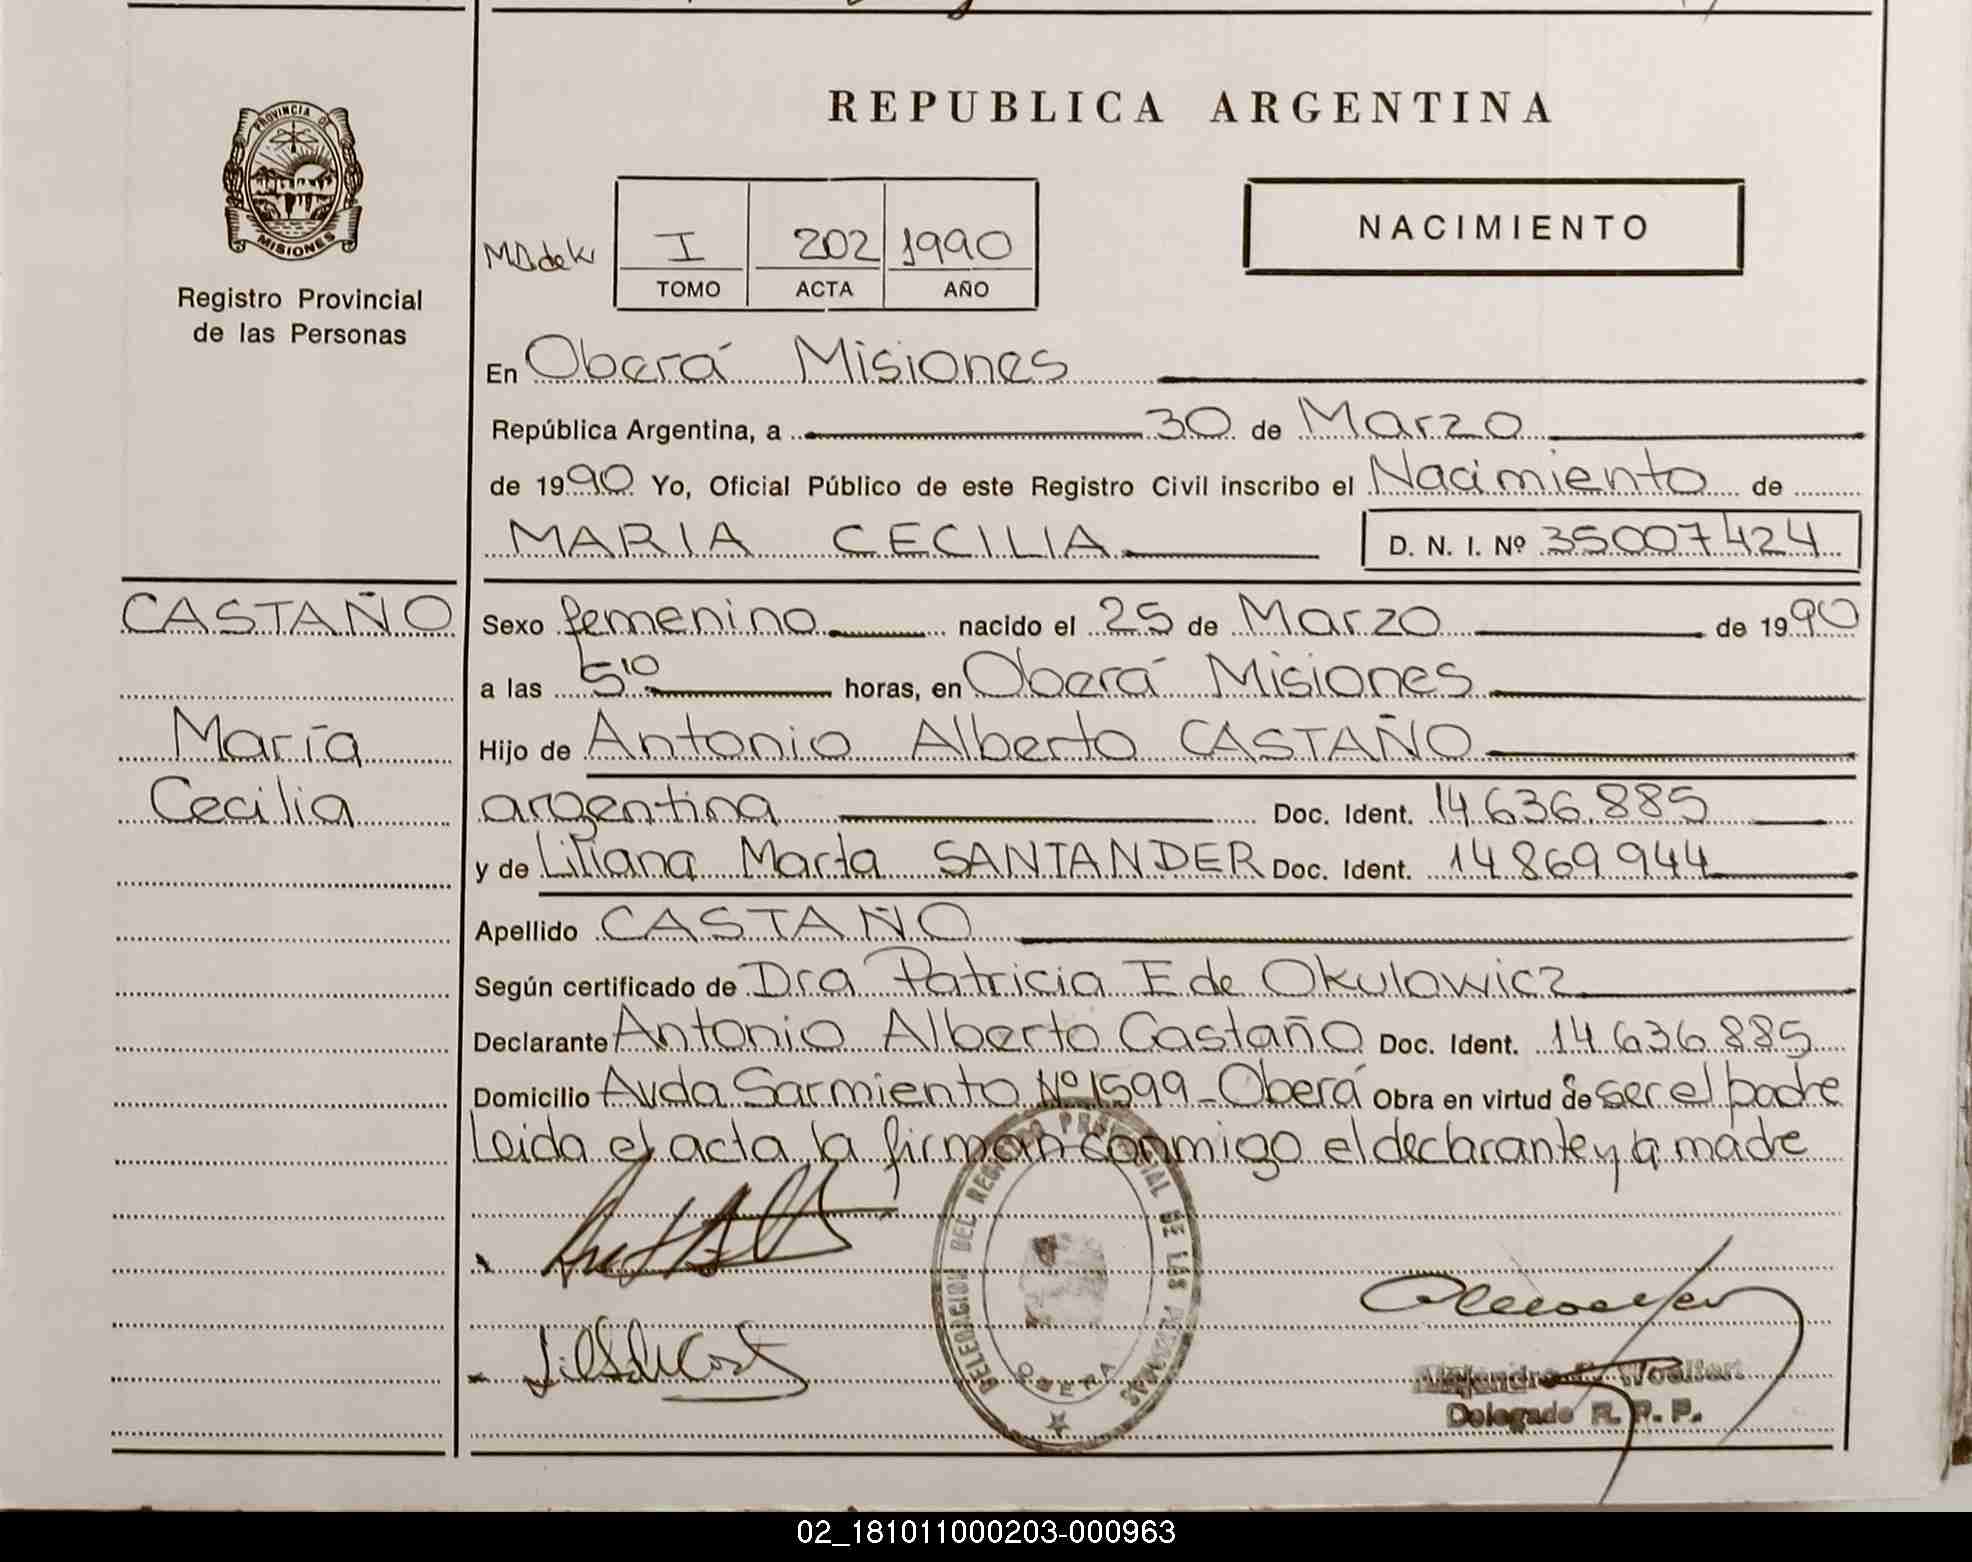 PROVINCIA DE
MISIONES
Registro Provincial
de las Personas
REPUBLICA ARGENTINA
I 202 1990
TOMO ACTA AÑO
NACIMIENTO
En Oberá Misiones
República Argentina, a 30 de Marzo
de 1990 Yo, Oficial Público de este Registro Civil inscribo el Nacimiento de
MARIA CECILIA D. N. I. Nº 35007424
CASTAÑO
María
Cecilia
Sexo femenino nacido el 25 de Marzo de 1990
a las 5 10 horas, en Oberá Misiones
Hijo de Antonio Alberto CASTAÑO
argentina Doc. Ident. 14.636.885
y de Liliana Marta SANTANDER Doc. Ident. 14869944
Apellido CASTAÑO
Según certificado de Dra Patricia E de Okulowicz
Declarante Antonio Alberto Castaño Doc. Ident. 14.636.885
Domicilio Avda Sarmiento Nº 1599-Oberá Obra en virtud de ser el padre
Leida el acta la firman conmigo el declarante y la madre
DELEGACION DEL REGISTRO PROVINCIAL DE LAS PERSONAS
OBERA
Alejandro Woelfert
Delegado R. P. P.
02_181011000203-000963